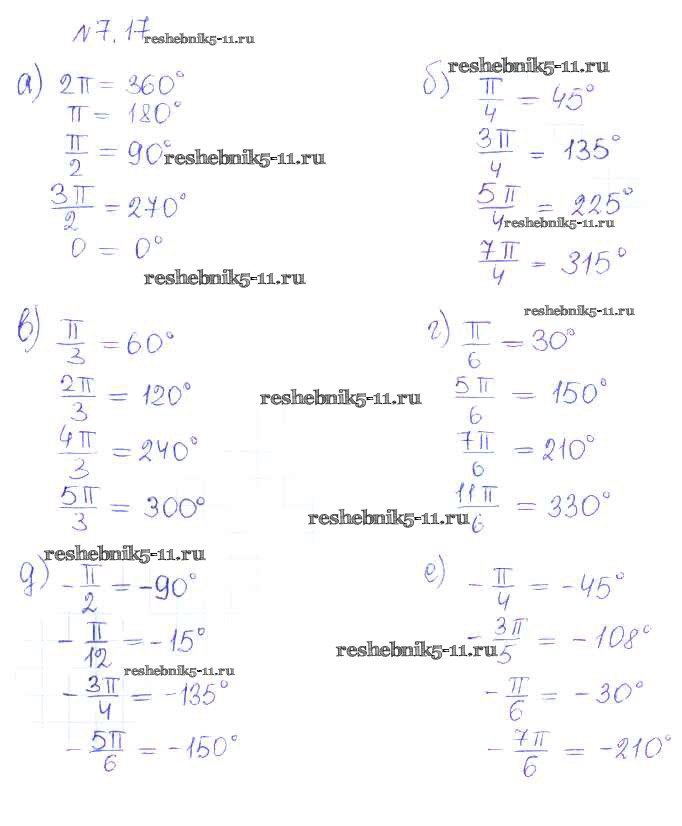 N 7.17
reshebnik5-11.ru
а) 2π = 360°
π = 180°
π/2 = 90°
reshebnik5-11.ru
3π/2 = 270°
0 = 0°
reshebnik5-11.ru
reshebnik5-11.ru
б) π/4 = 45°
3π/4 = 135°
5π/4 = 225°
reshebnik5-11.ru
7π/4 = 315°
в) π/3 = 60°
2π/3 = 120°
4π/3 = 240°
5π/3 = 300°
reshebnik5-11.ru
reshebnik5-11.ru
г) π/6 = 30°
5π/6 = 150°
7π/6 = 210°
11π/6 = 330°
reshebnik5-11.ru
reshebnik5-11.ru
д) -π/2 = -90°
-π/12 = -15°
reshebnik5-11.ru
-3π/4 = -135°
-5π/6 = -150°
е) -π/4 = -45°
-3π/5 = -108°
reshebnik5-11.ru
-π/6 = -30°
-7π/6 = -210°